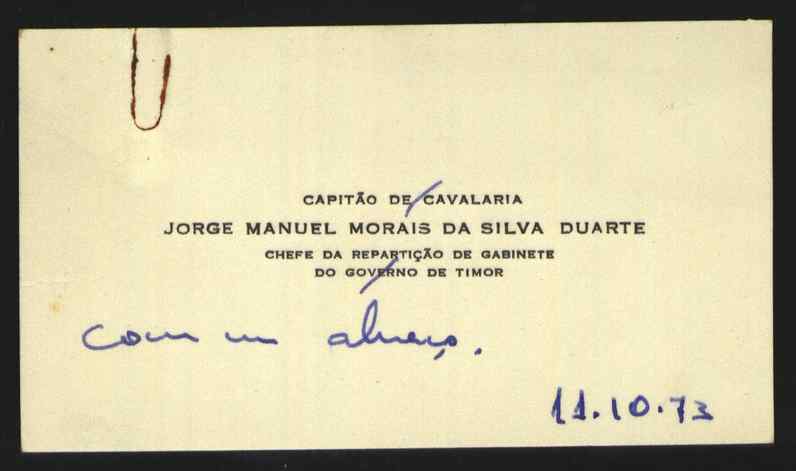 CAPITÃO DE CAVALARIA
JORGE MANUEL MORAIS DA SILVA DUARTE
CHEFE DA REPARTIÇÃO DE GABINETE
DO GOVERNO DE TIMOR
com um abraço.
11.10.73